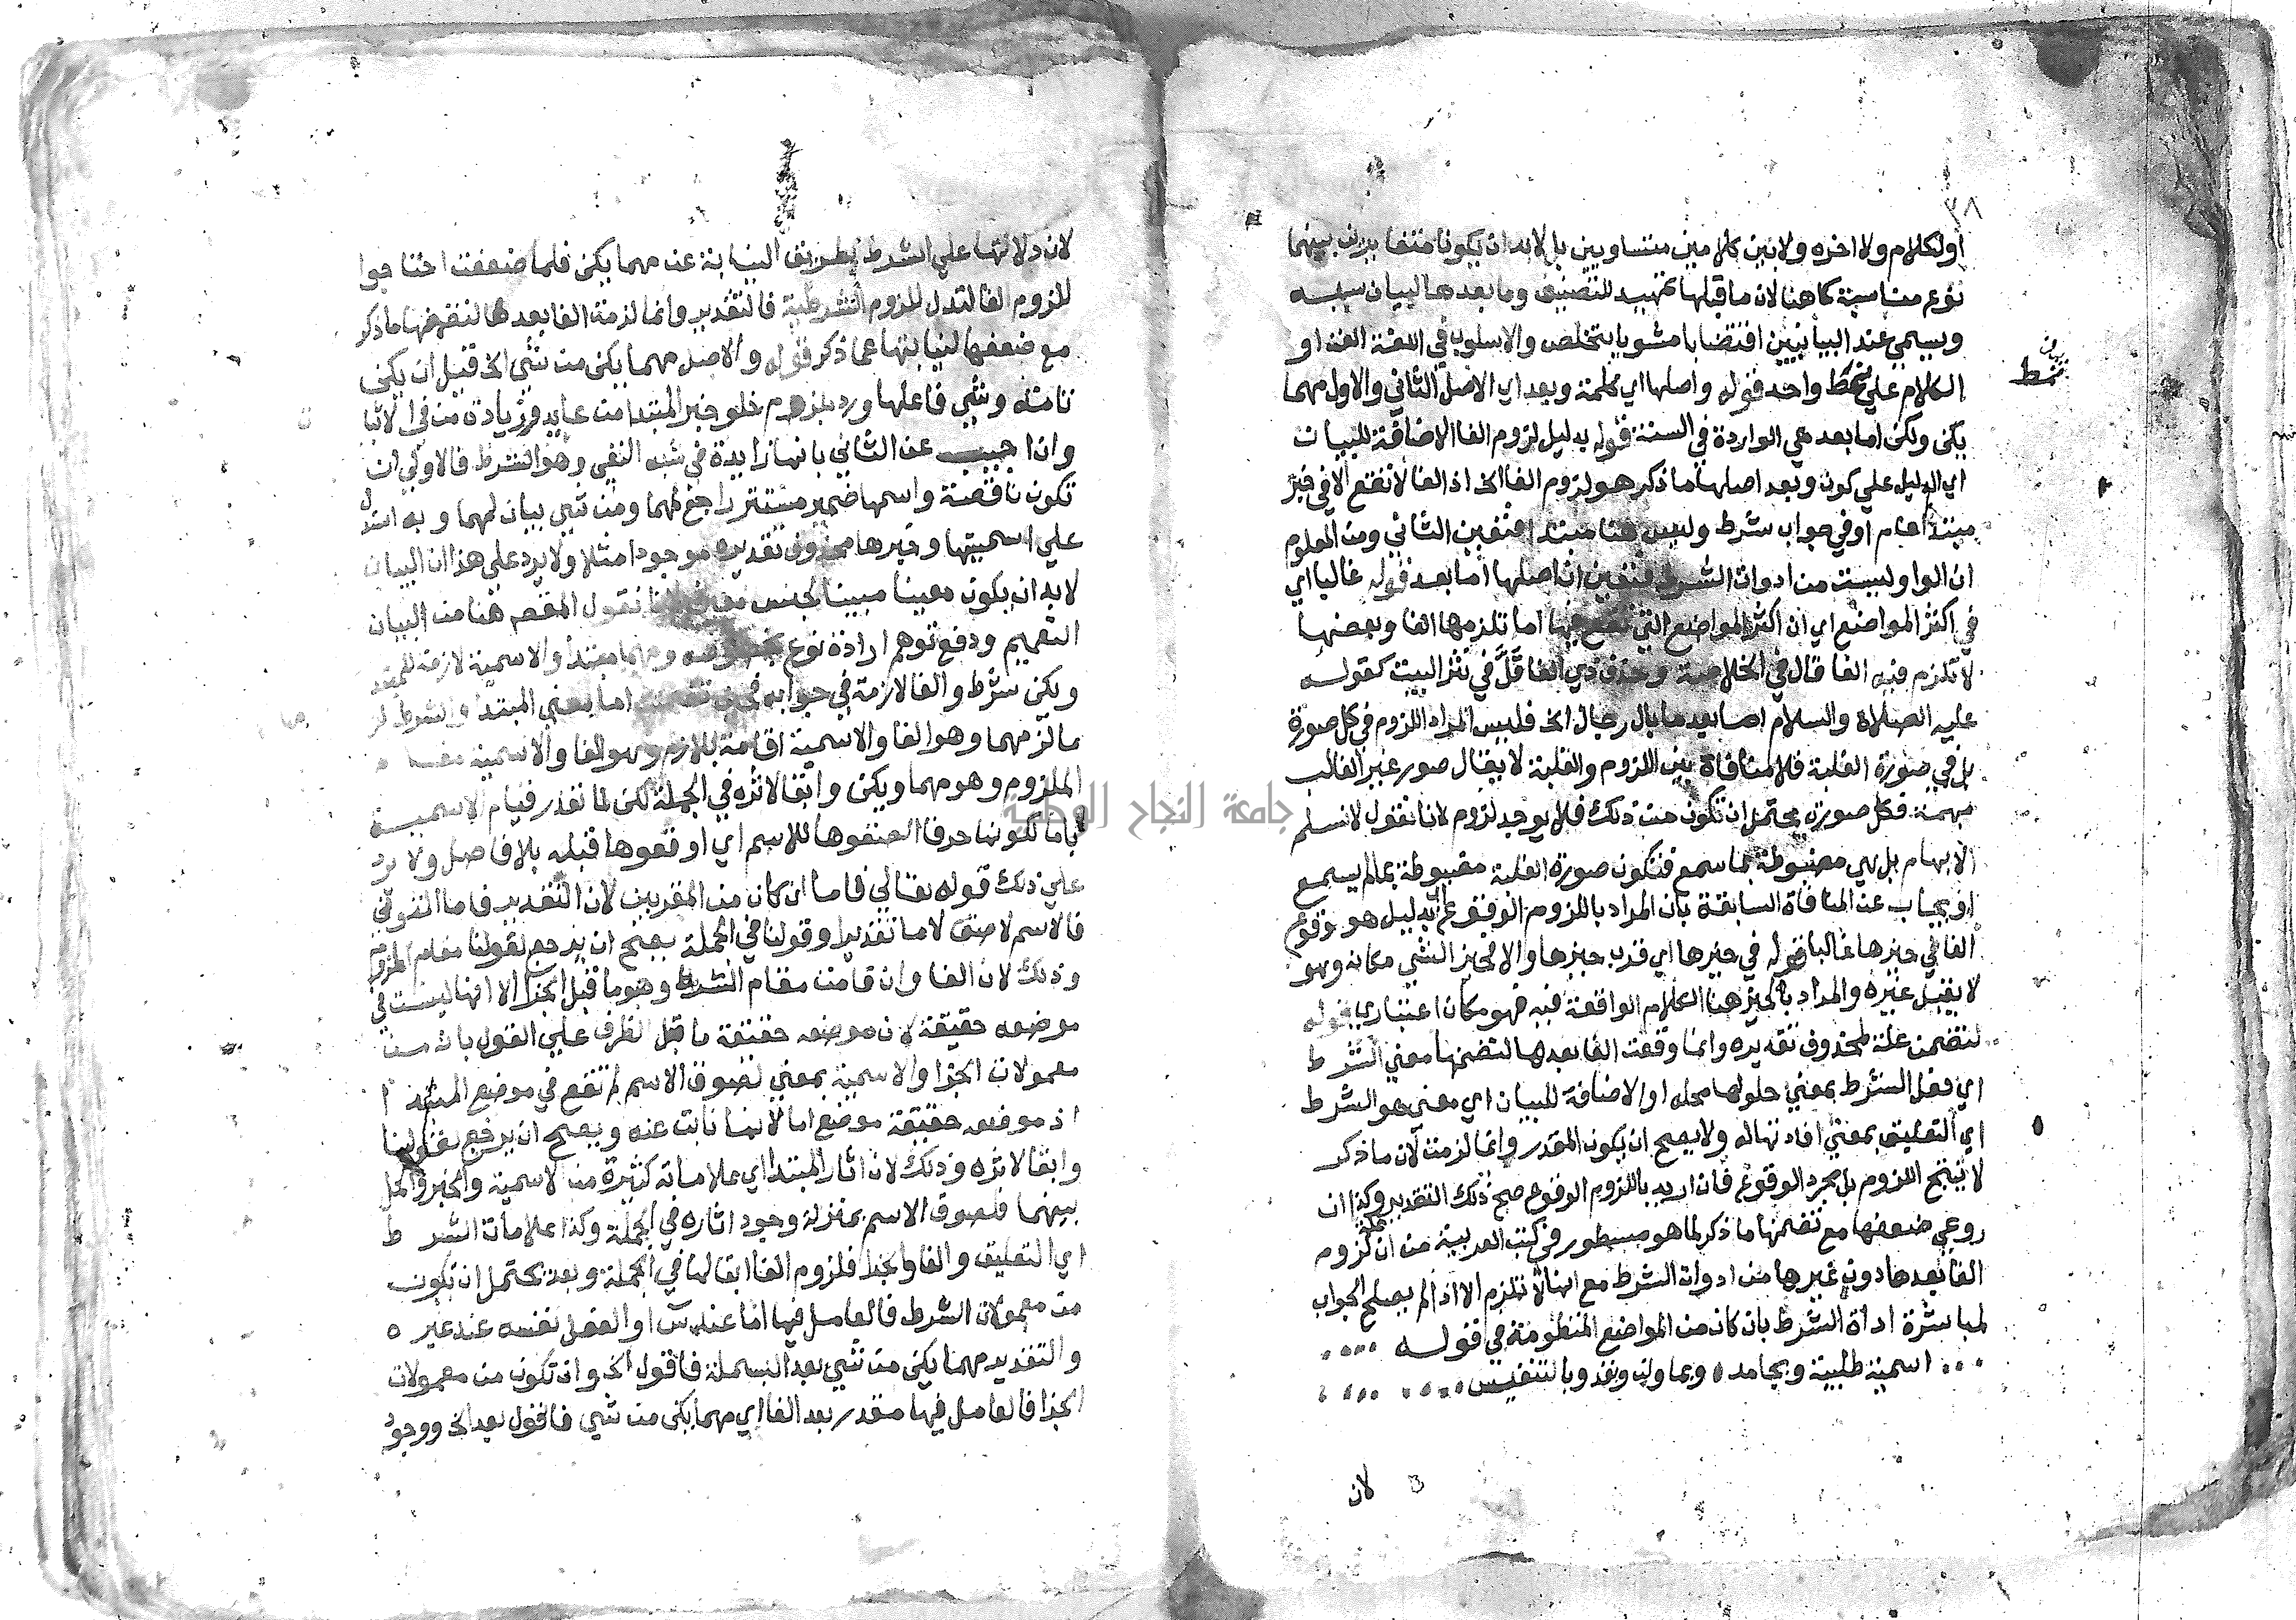 ٣٨
اول كلام ولا اخره ولا بين كلامين متساويين بل لابد ان يكونا متغايرين بينهما
نوع مناسبة كما هنا لان ما قبلها تمهيد للتصنيف وما بعدها لبيان سببه
ويسمي عند البيانيين اقتضابا مشوبا بتخلص والاسلوب في اللغة الفن او
الكلام علي نمط واحد قوله واصلها اي كلمة وبعد اي الاصل الثاني والاول مهما
يكن ولكن اما بعد هي الواردة في السنة قوله بدليل لزوم الفا الاضافة للبيان
اي الدليل علي كون وبعد اصلها ما ذكر هو لزوم الفا الخ اذ الفا لا تقع الا في خبر
مبتدا عام او في جواب شرط وليس هنا مبتدا فتعين الثاني ومن المعلوم
ان الواو ليست من ادوات الشرط فتعين ان اصلها اما بعد قوله غالبا اي
في اكثر المواضع اي ان اكثر المواضع التي تقع فيها اما تلزمها الفا وبعضها
لا تلزم فيه الفا قال في الخلاصة وحذف ذي الفا قل في نثر البيت كقوله
عليه الصلاة والسلام اما بعد ما بال رجال الخ فليس المراد اللزوم في كل صورة
بل في صورة الغلبة فلا منافاة بين اللزوم والغلبة لا يقال صور غير الغالب
مبهمة فكل صورة يحتمل ان تكون من ذلك فلا يوجد لزوم لانا نقول لا نسلم
الابهام بل هي مضبوطة بما سمع فتكون صورة الغلبة مضبوطة بما لم يسمع
او يجاب عن المنافاة السابقة بان المراد باللزوم الوقوع بدليل هو وقوع
الفا في حيزها غالبا قوله في حيزها اي قرب حيزها والا فحيز الشي مكانه وهو
لا يقبل غيره والمراد بالحيز هنا الكلام الواقعة فيه فهو مكان اعتباري قوله
لتضمن علة لمحذوف تقديره وانما وقعت الفا بعدها لتضمنها معني الشرط
اي فعل الشرط بمعني حلولها محله او الاضافة للبيان اي معني هو الشرط
اي التعليق بمعني افادتها له ولا يصح ان يكون المقدر وانما لزمت لان ما ذكر
لا ينتج اللزوم بل مجرد الوقوع فان اريد باللزوم الوقوع صح ذلك التقدير وكذا ان
روعي ضعفها مع تضمنها ما ذكر لما هو مسطور في كتب العربية من ان لزوم
الفا بعدها دون غيرها من ادوات الشرط مع انها لا تلزم الا اذا لم يصلح الجواب
لمباشرة اداة الشرط بان كان من المواضع المنظومة في قوله
اسمية طلبية وبجامد وبما ولن وقد وبالتنفيس
لان
نمط
لان دلالتها علي الشرط بطريق النيابة عن مهما يكن فلما ضعفت احتاجوا
للزوم الفا لتدل للزوم الشرطية فالتقدير وانما لزمة الفا بعدها لتضمنها ما ذكر
مع ضعفها لنيابتها عما ذكر قوله والاصل مهما يكن من شي الخ قيل ان يكن
تامة وشي فاعلها ورد بلزوم خلو خبر المبتدا من عايد وزيادة من في الاثبا
واذا جيب عن الثاني بانها زايدة في شبه النفي وهو الشرط فالاولي ان
تكون ناقصة واسمها ضمير مستتر راجع لمهما ومن شي بيان لمهما وبه استدل
علي اسميتها وخبرها محذوف تقديره موجودا مثلا ولا يرد علي هذا ان البيان
لابد ان يكون معينا مبينا لجنس معين لانا نقول المقصد هنا من البيان
التعميم ودفع توهم ارادة نوع بخصوصه ومهما مبتدا والاسمية لازمة للمبتدا
ويكن شرط والفا لازمة في جوابه فحين تضمنت اما معني المبتدا والشرط لز
مالزمهما وهو الفا والاسمية اقامة للازم وهو الفا والاسمية مقام
الملزوم وهو مهما ويكن وابقا لاثره في الجملة لكن لما تعذر قيام الاسمية
باما لكونها حرفا الصقوها للاسم اي اوقعوها قبله بلا فاصل ولا يرد
علي ذلك قوله تعالي فاما ان كان من المقربين لان التقدير فاما المتوفي
فالاسم لاصق لاما تقديرا وقولنا في الجملة يصح ان يرجع لقولنا مقام الملزوم
وذلك لان الفا وان قامت مقام الشرط وهو ما قبل الجزا الا انها ليست في
موضعه حقيقة لان موضعه حقيقة ما قبل الظرف علي القول بانه من
معمولات الجزا والاسمية بمعني لصوق الاسم لم تقع في موضع المبتدا
اذ موقعه حقيقة موضع اما لانها نابت عنه ويصح ان يرجع لقولنا
وابقا لاثره وذلك لان اثار المبتدا اي علاماته كثيرة من الاسمية والخبر والحل
بينهما فلصوق الاسم بمنزلة وجود اثاره في الجملة وكذا علامات الشرط
اي التعليق والفا والجزا فلزوم الفا ابقا لها في الجملة وبعد يحتمل ان تكون
من معمولات الشرط فالعامل فيها اما عند س او الفعل نفسه عند غيره
والتقدير مهما يكن من شي بعد البسملة فاقول الخ وان تكون من معمولات
الجزا فالعامل فيها مقدر بعد الفا اي مهما يكن من شي فاقول بعد الخ ووجو
جامعة النجاح الوطنية